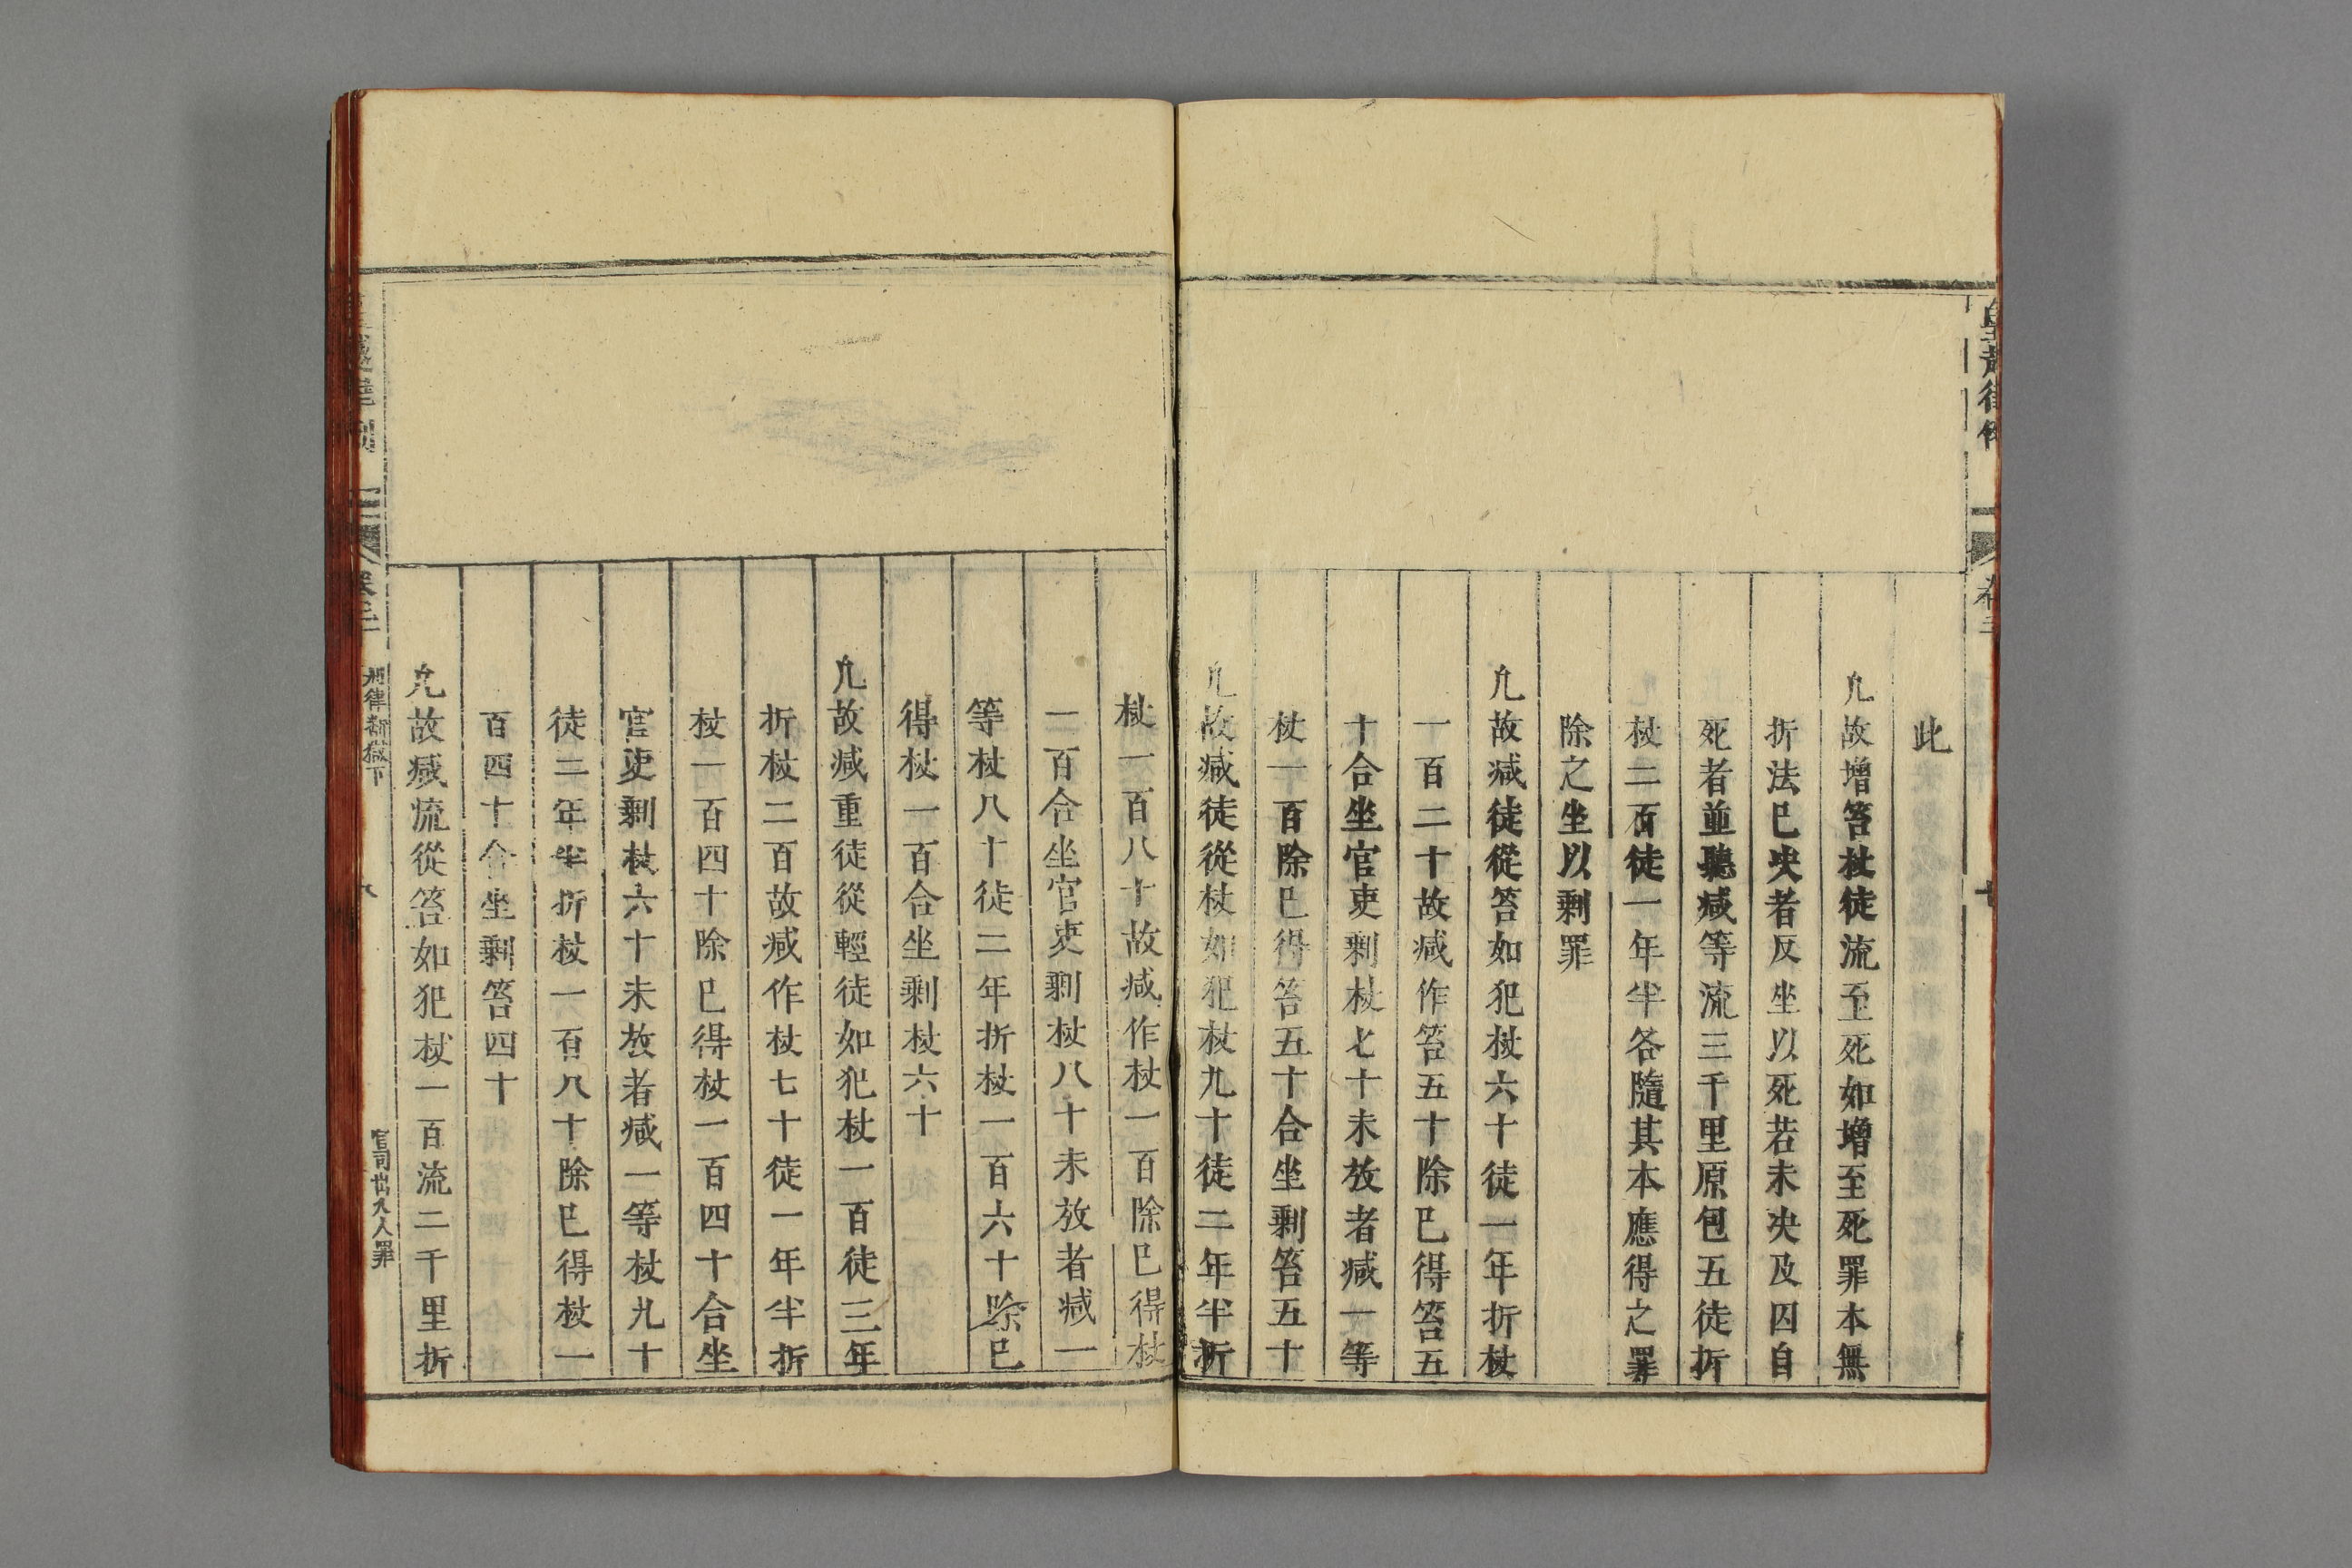 此
凢故增笞杖徒流至死如增至死罪本無
折法巳决者反坐以死若未决及囚自
死者並聽减等流三千里原包五徒折
杖二百徒一年半各隨其本應得之罪
除之坐以剩罪
凢故减徒從笞如犯杖六十徒一年折杖
一百二十故减作笞五十除巳得笞五
十合坐官吏剩杖七十未放者减一等
杖一百除巳得笞五十合坐剩笞五十
凢故减徒從杖如犯杖九十徒二年半折
杖一百八十故减作杖一百除巳得杖
一百合坐官吏剩杖八十未放者减一
等杖八十徒二年折杖一百六十除巳
得杖一百合坐剩杖六十
凢故减重徒從輕徒如犯杖一百徒三年
折杖二百故减作杖七十徒一年半折
杖一百四十除巳得杖一百四十合坐
官吏剩杖六十未放者减一等杖九十
徒二年半折杖一百八十除巳得杖一
百四十合坐剩笞四十
凢故减流從笞如犯杖一百流二千里折
刑律斷獄下
官司出入人罪